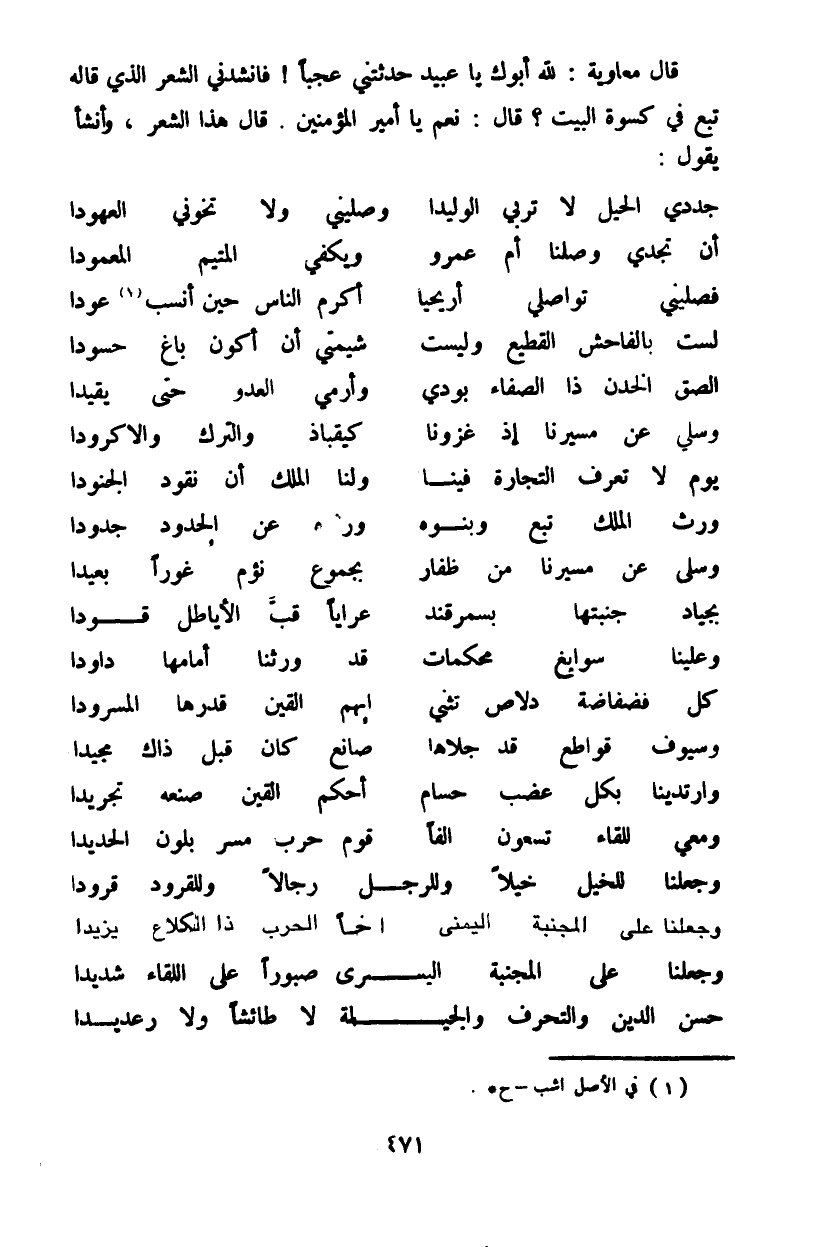 قال معاوية : لله أبوك يا عبيد حدثتني عجباً ! فانشدني الشعر الذي قاله
تبع في كسوة البيت ؟ قال : نعم يا أمير المؤمنين . قال هذا الشعر ، وأنشأ
يقول :
جددي الحيل لا تربي الوليدا وصليني ولا تخوني العهودا
أن تجدي وصلنا أم عمرو ويكفي المتيم المعمودا
فصليني تواصلي أريحيا أكرم الناس حين أنسب (١) عودا
لست بالفاحش القطيع وليست شيمتي أن أكون باغ حسودا
الصق الخدن ذا الصفاء بودي وأرمي العدو حتى يقيدا
وسلي عن مسيرنا إذ غزونا كيقباذ والترك والاكرودا
يوم لا تعرف التجارة فينا ولنا الملك أن نقود الجنودا
ورث الملك تبع وبنوه عن الجدود جدودا
وسلى عن مسيرنا من ظفار بجموع نؤم غوراً بعيدا
بجياد جنبتها بسمرقند عراياً قبَّ الأياطل قودا
وعلينا سوابغ محكمات قد ورثنا أمامها داودا
كل فضفاضة دلاص تثني ابهم القين قدرها المسرودا
وسيوف قواطع قد جلاها صانع كان قبل ذاك مجيدا
وارتدينا بكل عضب حسام أحكم القين صنعه تجريدا
ومعي للقاء تسعون الفاً قوم حرب مسر بلون الحديدا
وجعلنا للخيل خيلاً وللرجل رجالاً وللقرود قرودا
وجعلنا على المجنبة اليمنى اخاً الحرب ذا الكلاع يزيدا
وجعلنا على المجنبة اليسرى صبوراً على اللقاء شديدا
حسن الدين والتحرف والجيلة لا طائشاً ولا رعديدا
(١) في الأصل اشب – ح* .
٤٧١